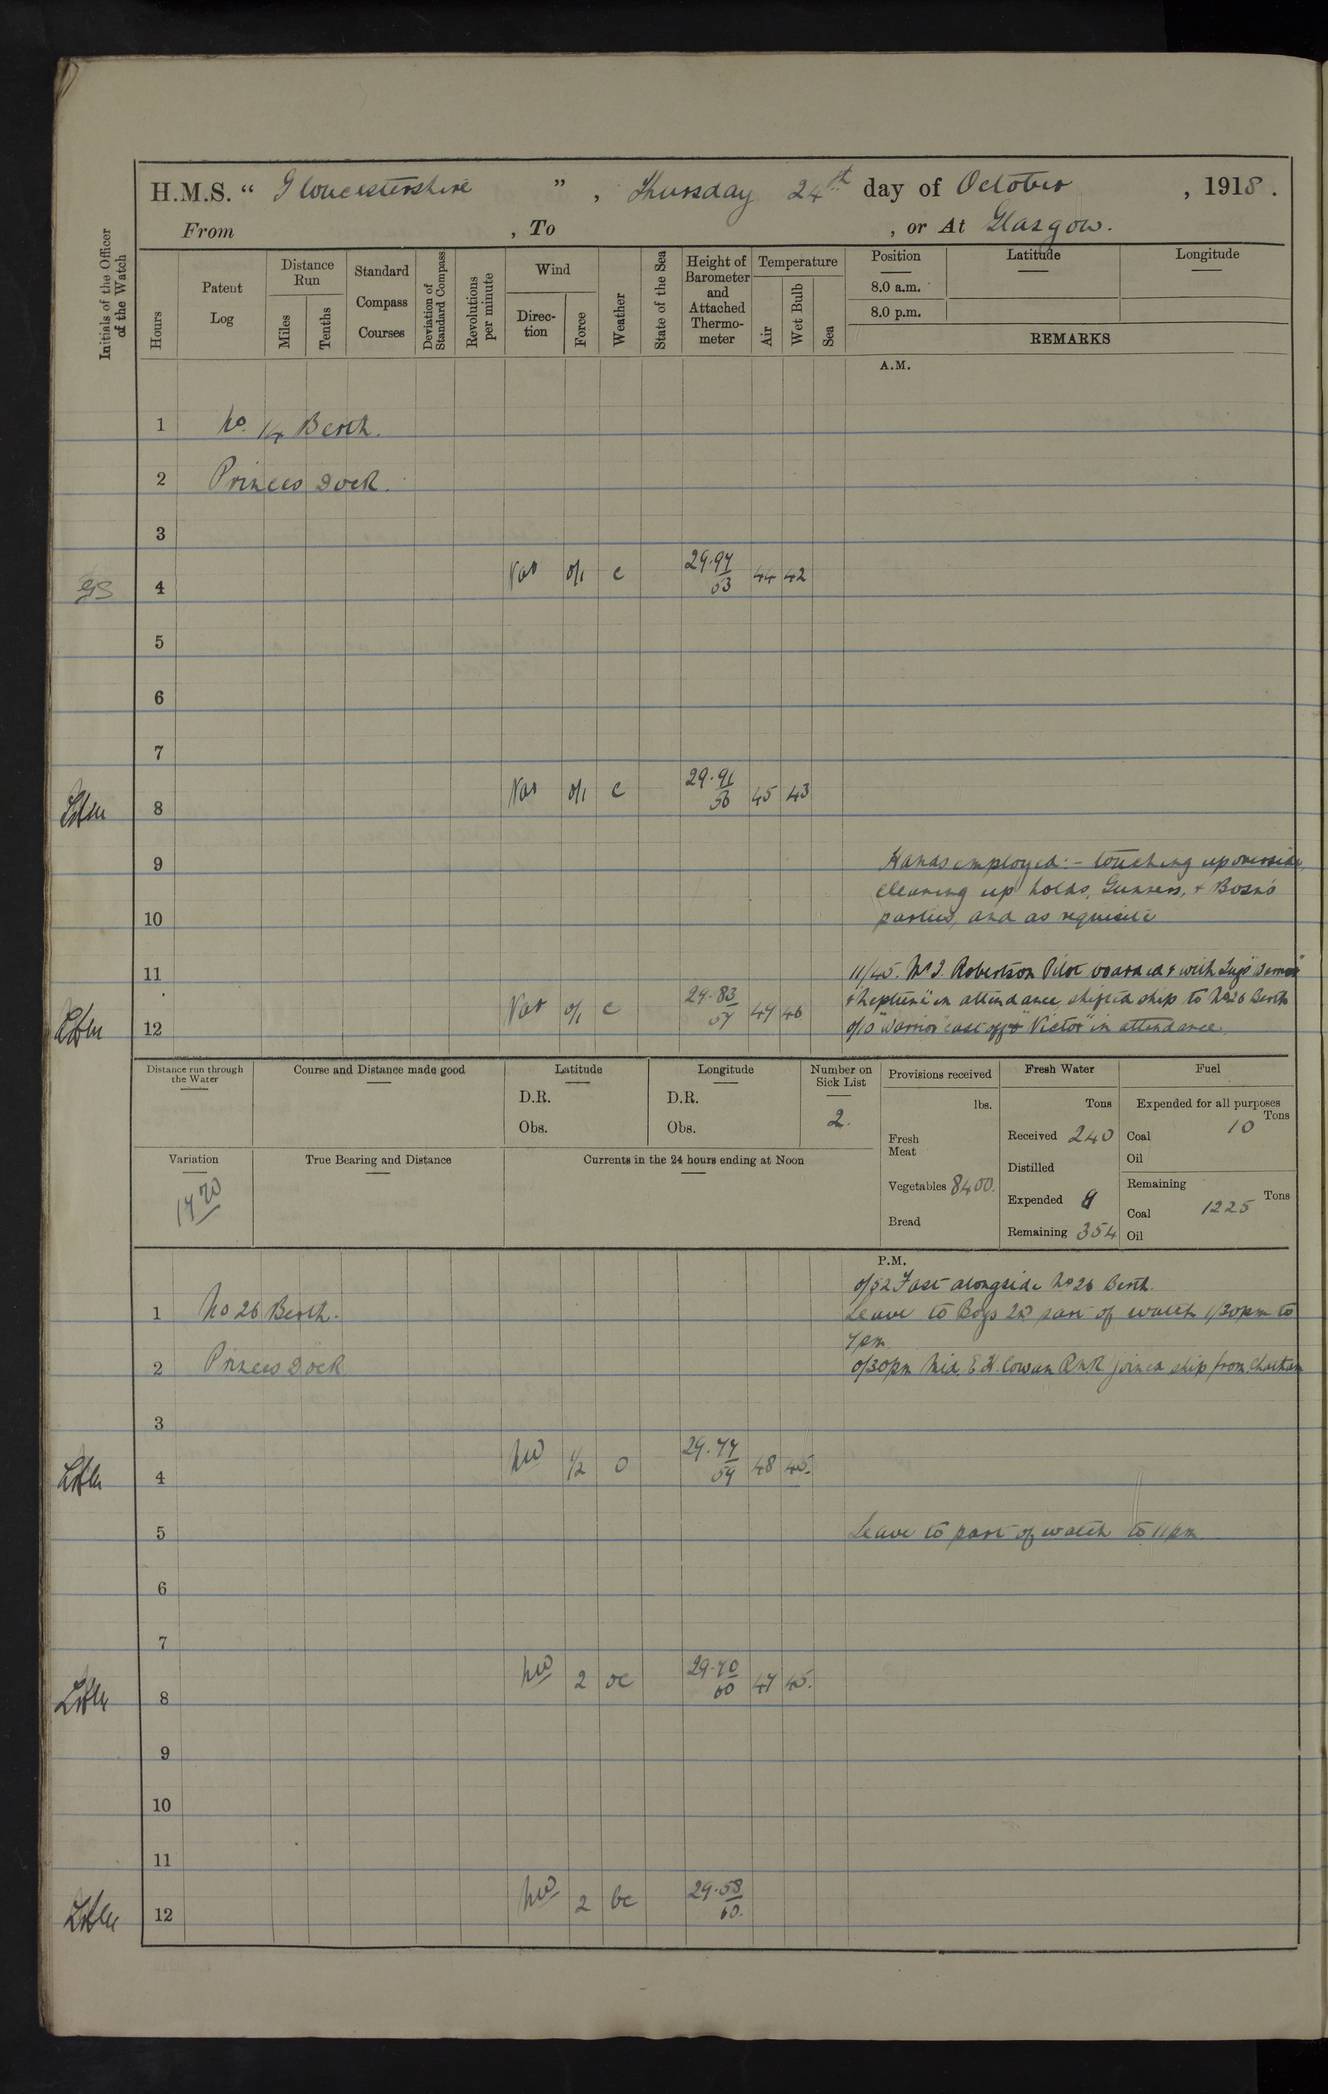 H.M.S. " Gloucestershire " , Thursday 24th day of October , 1918 .
From , To , or At Glasgow.
Initials of the Officer of the Watch
Hours
Patent Log
Distance Run
Miles
Tenths
Standard Compass Courses
Deviation of Standard Compass
Revolutions per minute
Wind
Direction
Force
Weather
State of the Sea
Height of Barometer and Attached Thermometer
Temperature
Air
Wet Bulb
Sea
Position
8.0 a.m.
8.0 p.m.
Latitude
Longitude
REMARKS
A.M.
1 No. 14 Berth.
2 Princes Dock.
3
4 Var 0/1 c 29.97 53 44 42
5
6
7
8 Var 0/1 c 29.91 56 45 43
9 Hands employed:- touching up overside,
cleaning up holds, Gunners, & Bosn's
10 parties, and as requisite
11 11/45. Mr J. Robertson Pilot boarded & with Tugs "Warrior"
& Neptune" in attendance shifted ship to No 26 Berth
12 Var 0/1 c 29.83 57 47 46 0/10 "Warrior" cast off & "Victor" in attendance.
Distance run through the Water
Course and Distance made good
Latitude
D.R.
Obs.
Longitude
D.R.
Obs.
Number on Sick List
2.
Provisions received
lbs.
Fresh Meat
Vegetables 8400.
Bread
Fresh Water
Tons
Received 240
Distilled
Expended 9
Remaining 354
Fuel
Expended for all purposes
Tons
Coal 10
Oil
Remaining
Tons
Coal 1225
Oil
Variation
True Bearing and Distance
Currents in the 24 hours ending at Noon
P.M.
0/52 Fast alongside No 26 Berth.
1 No 26 Berth. Leave to Boys 2nd part of watch 1/30pm to
7pm
2 Princes Dock 0/30pm Mid. E.H. Cowan RNR joined ship from Chatham
3
4 NW 1/2 o 29.77 59 48 45.
5 Leave to part of watch to 11pm
6
7
8 NW 2 oc 29.70 60 47 45.
9
10
11
12 NW 2 bc 29.58 60.